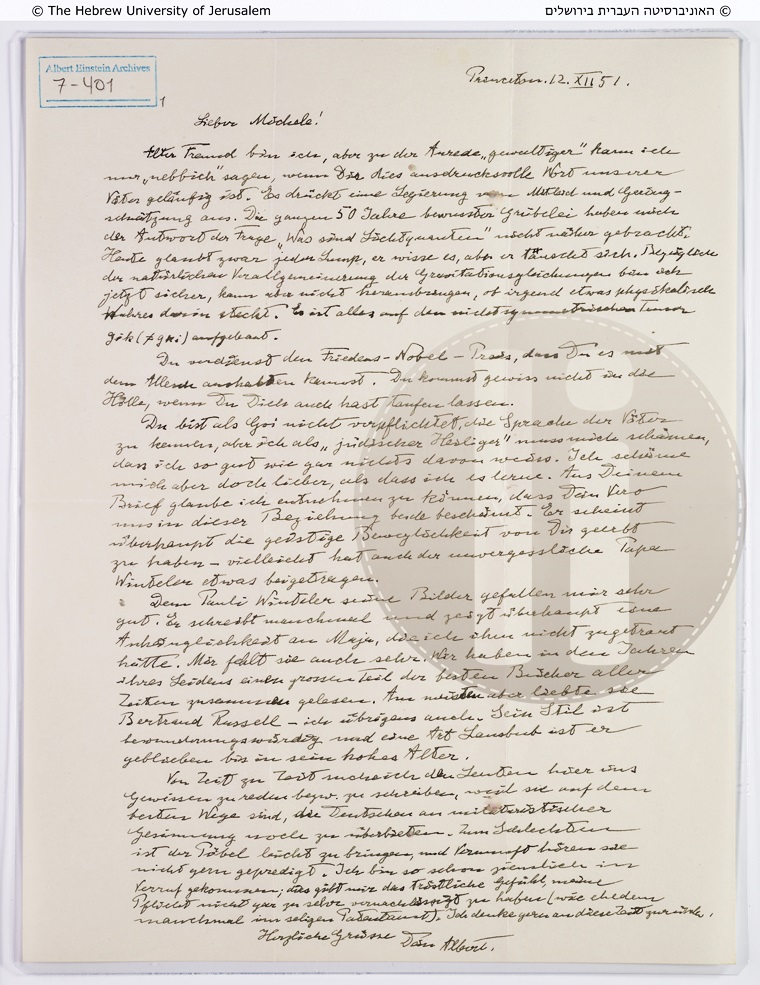 © The Hebrew University of Jerusalem
האוניברסיטה העברית בירושלים ©
Albert Einstein Archives
7-401
1
Princeton. 12. XII 51.
Lieber Michele!
Alter Freund bin ich, aber zu der Anrede „gewaltiger" kann ich
nur „nebbich" sagen, wenn Dir dies ausdrucksvolle Wort unserer
Väter geläufig ist. Es drückt eine Legierung von Mitleid und Gering-
schätzung aus. Die ganzen 50 Jahre bewusster Grübelei haben mich
der Antwort der Frage „Was sind Lichtquanten" nicht näher gebracht.
Heute glaubt zwar jeder Lump, er wisse es, aber er täuscht sich. Bezüglich
der natürlichen Verallgemeinerung der Gravitationsgleichungen bin ich
jetzt sicher, kann aber nicht herausbringen, ob irgend etwas physikalisch
Wahres darin steckt. Es ist alles auf dem nichtsymmetrischen Tensor
gik (≠ gki) aufgebaut.
Du verdienst den Friedens-Nobel-Preis, dass Du es mit
dem aushalten kannst. Du kommst gewiss nicht in die
Hölle, wenn Du Dich auch hast taufen lassen.
Du bist als Goi nicht verpflichtet, die Sprache der Väter
zu kennen, aber ich als „jüdischer Heiliger" muss mich schämen,
dass ich so gut wie gar nichts davon weiss. Ich schäme
mich aber doch lieber, als dass ich es lerne. Aus Deinem
Brief glaube ich entnehmen zu können, dass Dein Vero
uns in dieser Beziehung beide beschämt. Er scheint
überhaupt die geistige Beweglichkeit von Dir geerbt
zu haben – vielleicht hat auch der unvergessliche Papa
Winteler etwas beigetragen.
Dem Pauli Winteler seine Bilder gefallen mir sehr
gut. Er schreibt manchmal und zeigt überhaupt eine
Anhänglichkeit an Maja, die ich ihm nicht zugetraut
hätte. Mir fehlt sie auch sehr. Wir haben in den Jahren
ihres Leidens einen grossen Teil der besten Bücher aller
Zeiten zusammen gelesen. Am meisten aber liebte sie
Bertrand Russell – ich übrigens auch. Sein Stil ist
bewunderungswürdig und eine Art Lausbub ist er
geblieben bis in sein hohes Alter.
Von Zeit zu Zeit suche ich den Leuten hier ins
Gewissen zu reden bezw. zu schreiben, weil sie auf dem
besten Wege sind, die Deutschen an militaristischer
Gesinnung noch zu überbieten. Zum Schlechten
ist der Pöbel leicht zu bringen, und Vernunft hören sie
nicht gern gepredigt. Ich bin so schon ziemlich in
Verruf gekommen; das gibt mir das tröstliche Gefühl, meine
Pflicht nicht gar zu sehr vernachlässigt zu haben (wie ehedem
manchmal im seligen Patentamt). Ich denke gern an diese Zeit zurück.
Herzliche Grüsse Dein Albert.